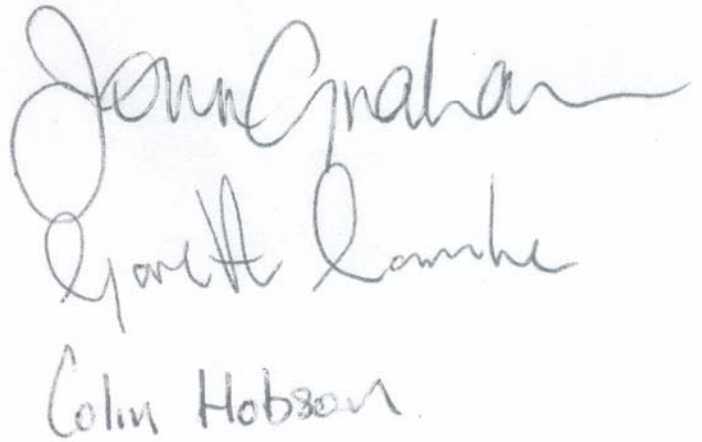 John Graham
Gareth
Colin Hobson